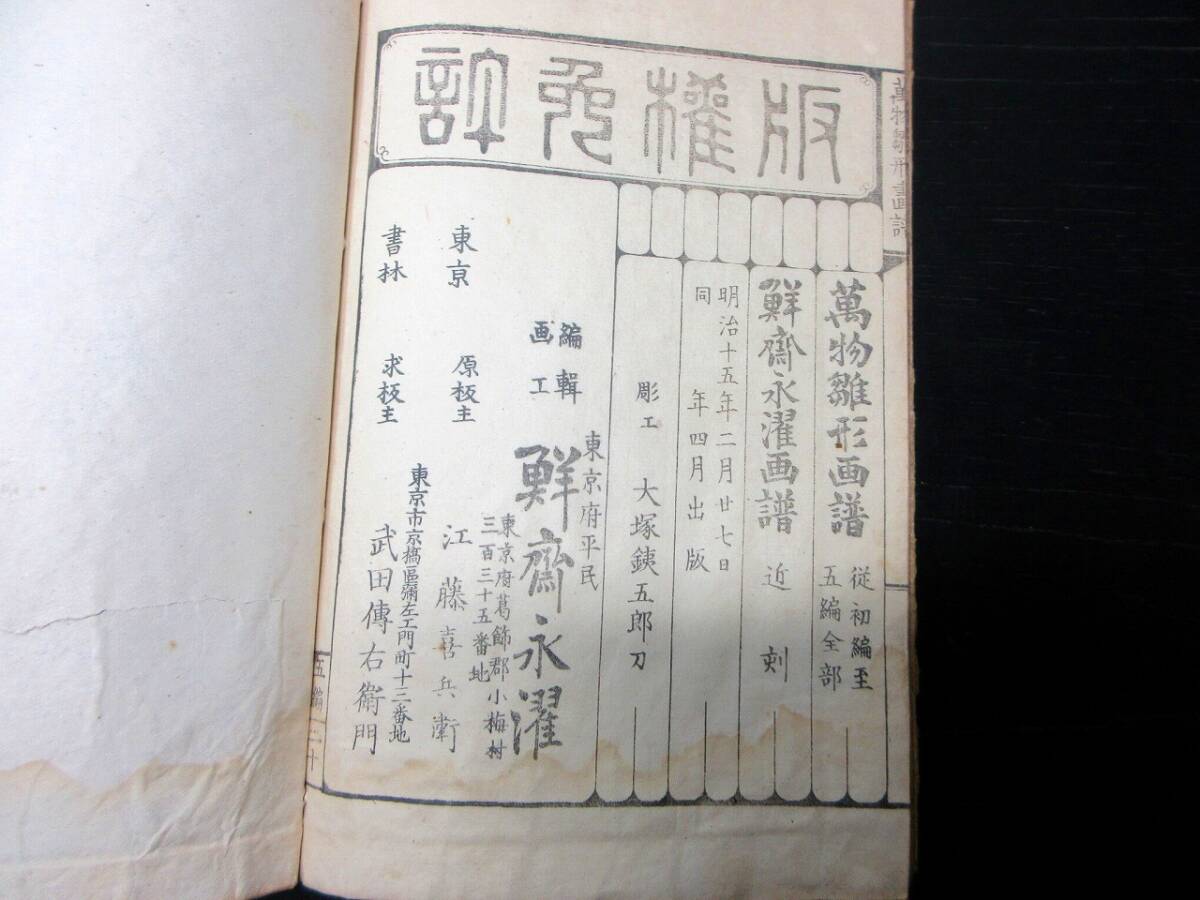 版權免許
萬物雛形畫譜
萬物雛形画譜
従初編至
五編全部
鮮齋永濯画譜 近刻
明治十五年二月廿七日
同 年四月出版
彫工 大塚銕五郎刀
東京府平民
編輯
画工
鮮齋永濯
東京府葛飾郡小梅村
三百三十五番地
東京 原板主 江藤喜兵衛
東京市京橋區彌左エ門町十三番地
書林 求板主 武田傳右衛門
五編 二十